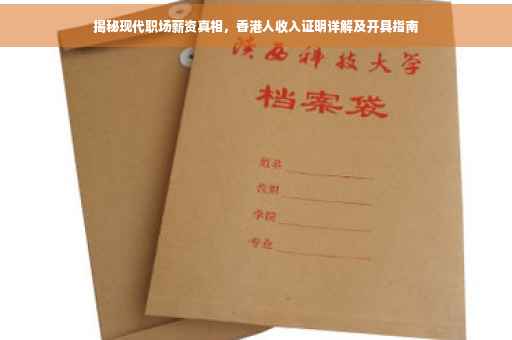 揭秘现代职场薪资真相，香港人收入证明详解及开具指南
陕西科技大学
档案袋
姓名
学院
专业